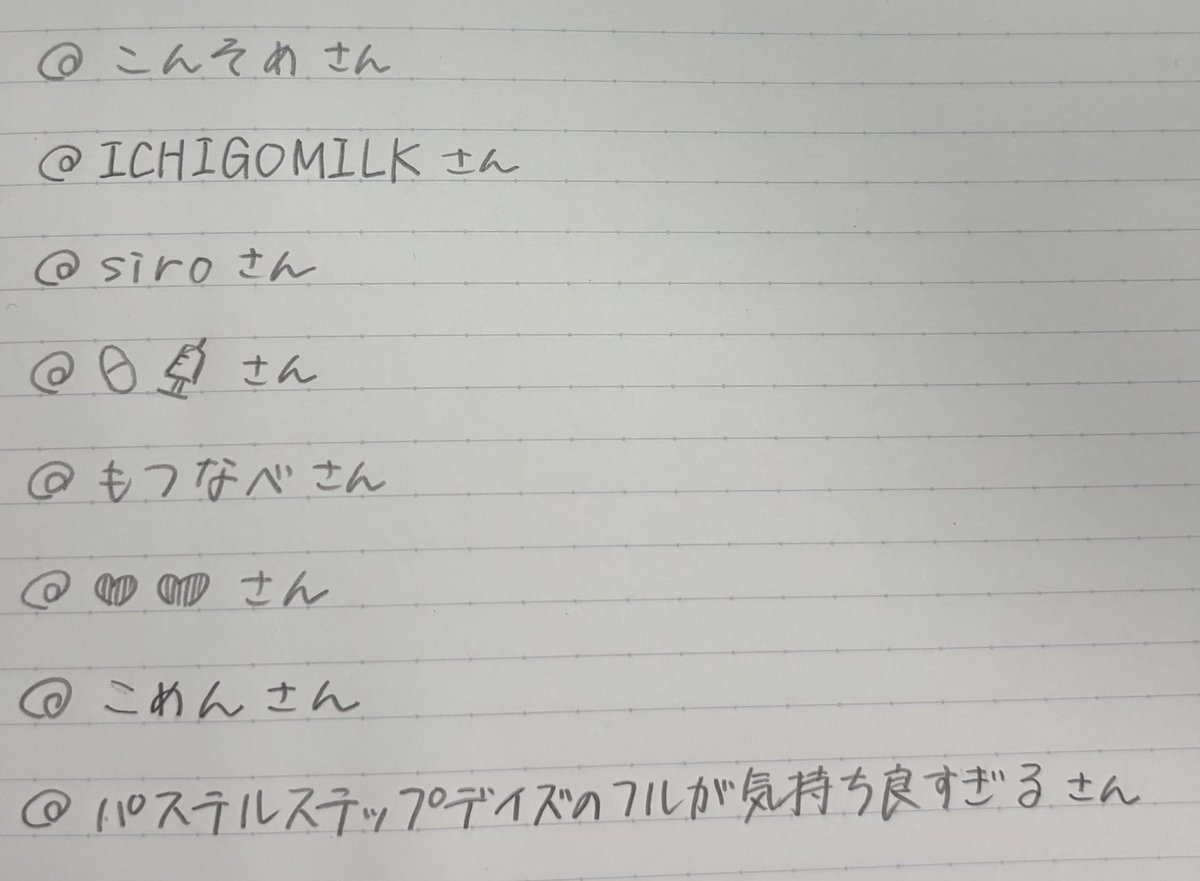 @こんそめさん
@ICHIGOMILKさん
@siroさん
@さん
@もつなべさん
@さん
@こめんさん
@パステルステップデイズのフルが気持ち良すぎるさん